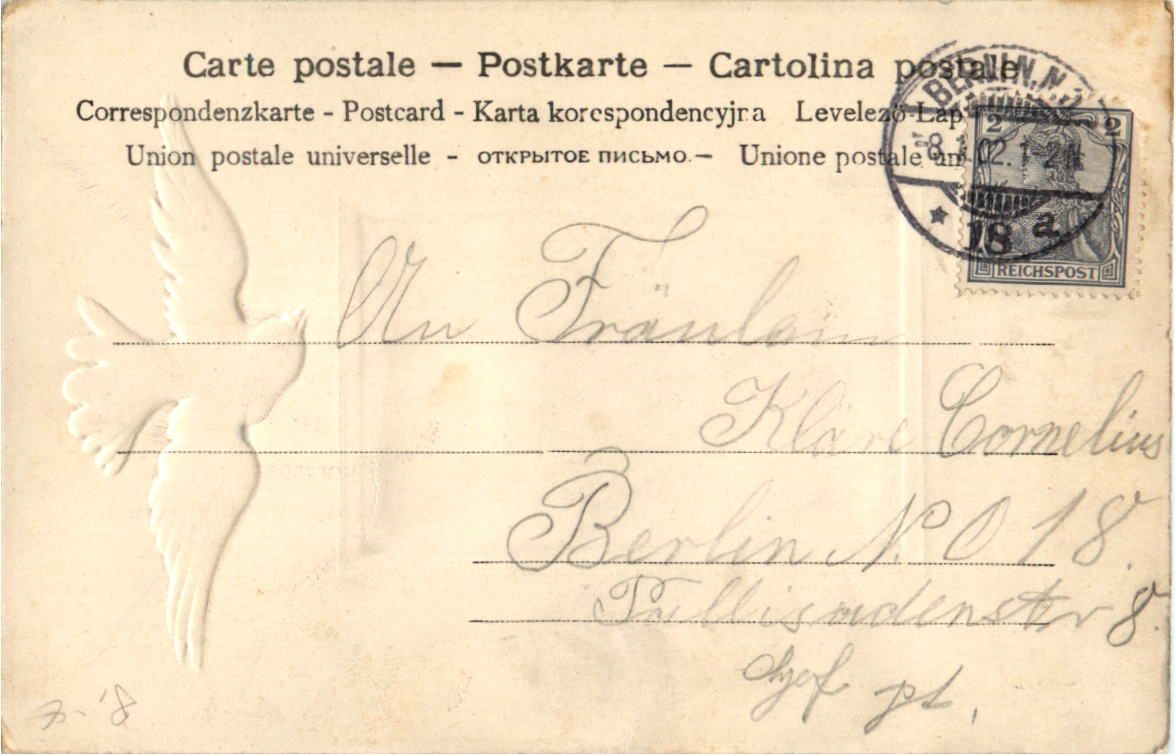 Carte postale — Postkarte — Cartolina postale
Correspondenzkarte - Postcard - Karta korespondencyjna Levelező-Lap
Union postale universelle - ОТКРЫТОЕ ПИСЬМО.— Unione postale uni
BERLIN.N.
8 02.1-2N
* 18 a
2 2
REICHSPOST
An Fräulein
Kläre Cornelius
Berlin N. O 18.
Pallisadenstr 8.
Hof pt.